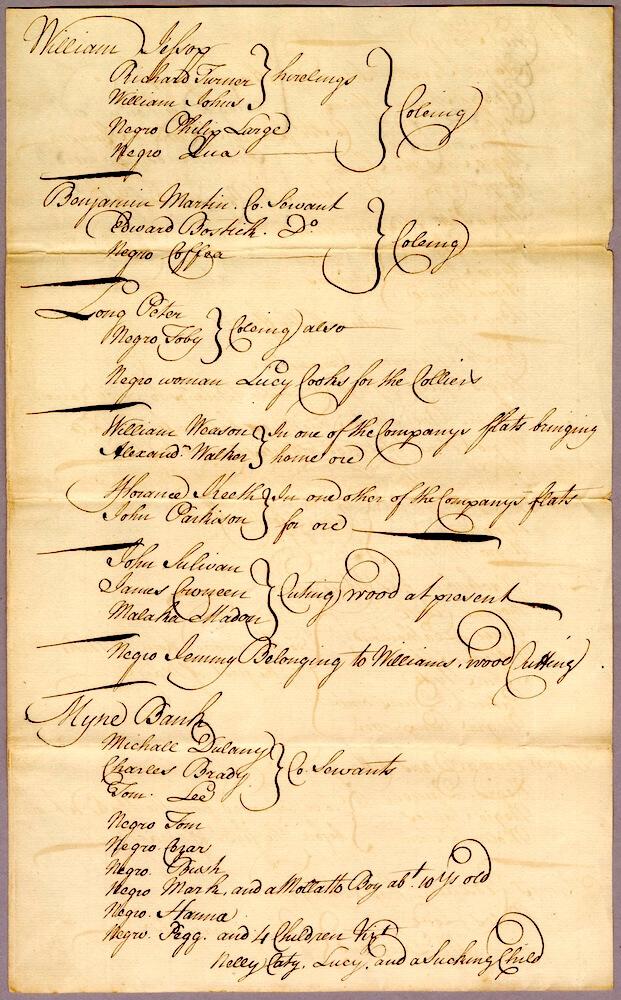 William Jessop
Richard Turner } hirelings
William Johns
Negro Philip Large
Negro Qua } Coleing
Benjamin Martin. Co. Servant
Edward Bostick. Do
Negro Coffea } Coleing
Long Peter
Negro Toby } Coleing also
Negro woman Lucy Cooks for the Colliers
William Weason } In one of the Companys flats bringing
Alexandr Walker } home ore
Florance Keeth } In one other of the Companys flats
John Parkison } for ore
John Sulivan
James Croneen } Cuting wood at present
Malaha Madon
Negro Jemmy Belonging to Williams. wood Cutting
Myne Bank
Michall Dulany
Charles Brady } Co. Servants
Tom. Lee
Negro Tom
Negro Cezar
Negro. Bush
Negro Mark, and a Mollatto Boy abt. 10 Ys old
Negro. Hanna
Negro. Pegg. and 4 Children Vizt
Nelly Caty, Lucy, and a Sucking Child